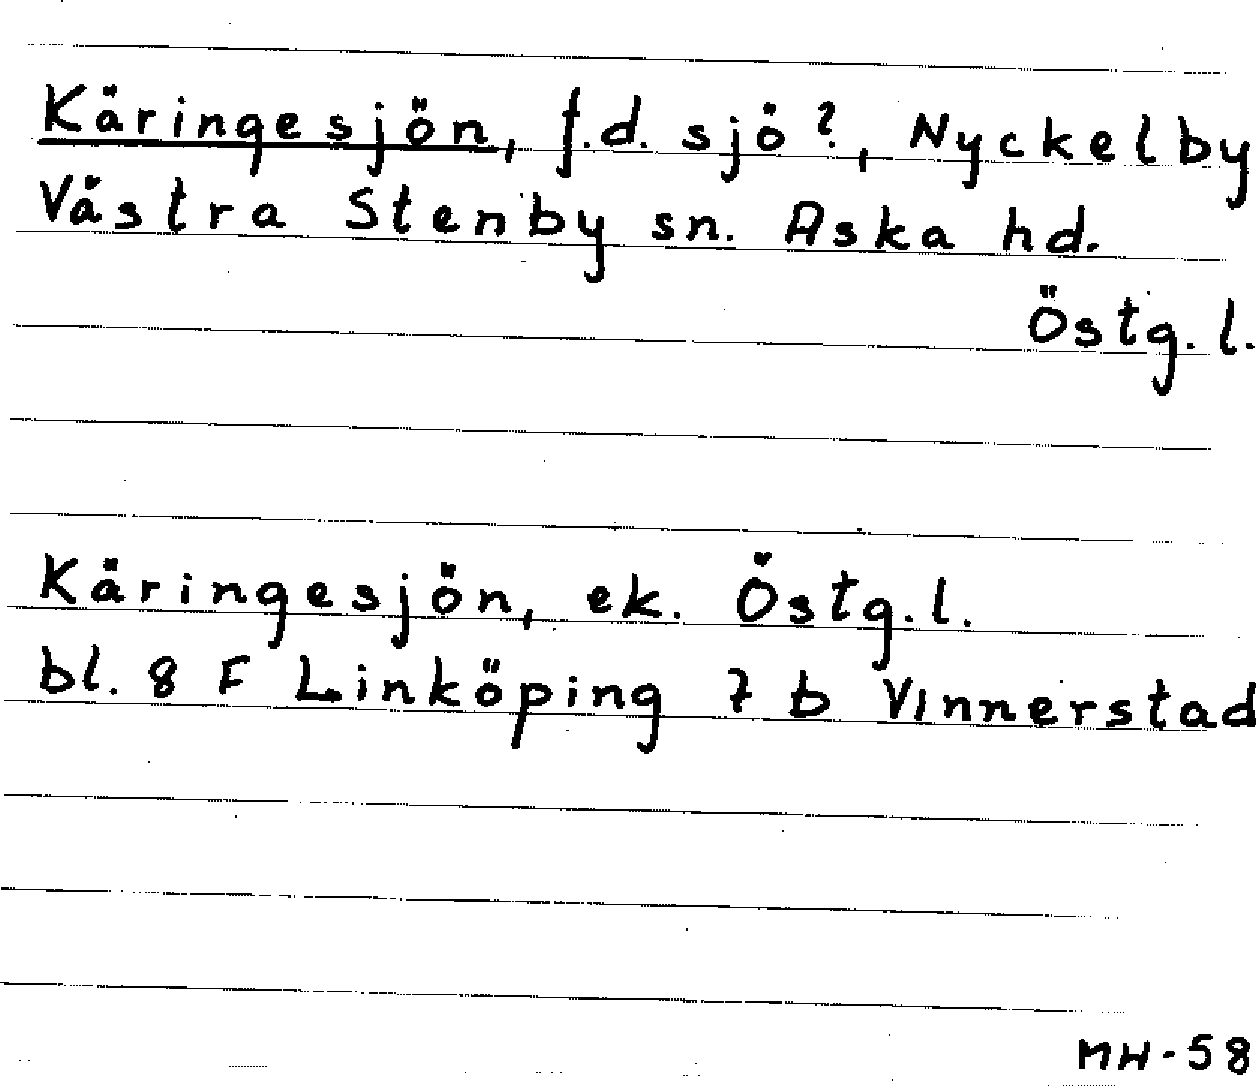 Käringesjön, f.d. sjö?, Nyckelby
Västra Stenby sn. Aska hd.
Östg. l.
Käringesjön, ek. Östg. l.
bl. 8 F Linköping 7 b Vinnerstad
MH-58